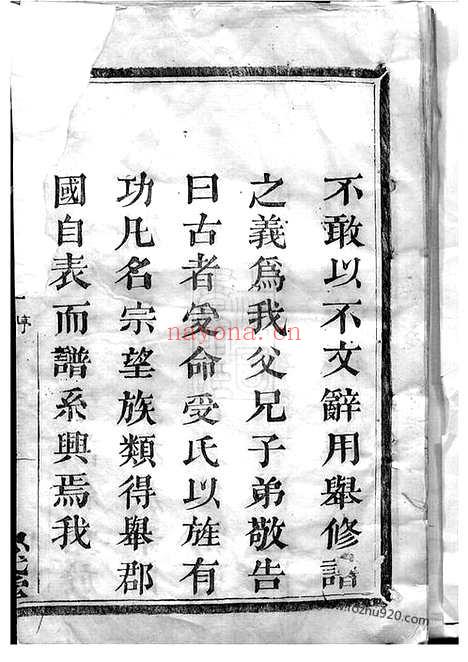 不敢以不文辭用舉修譜
之義爲我父兄子弟敬告
曰古者受命受氏以旌有
功凡名宗望族類得舉郡
國自表而譜系興焉我
序
nayona.cn
fozhu920.com